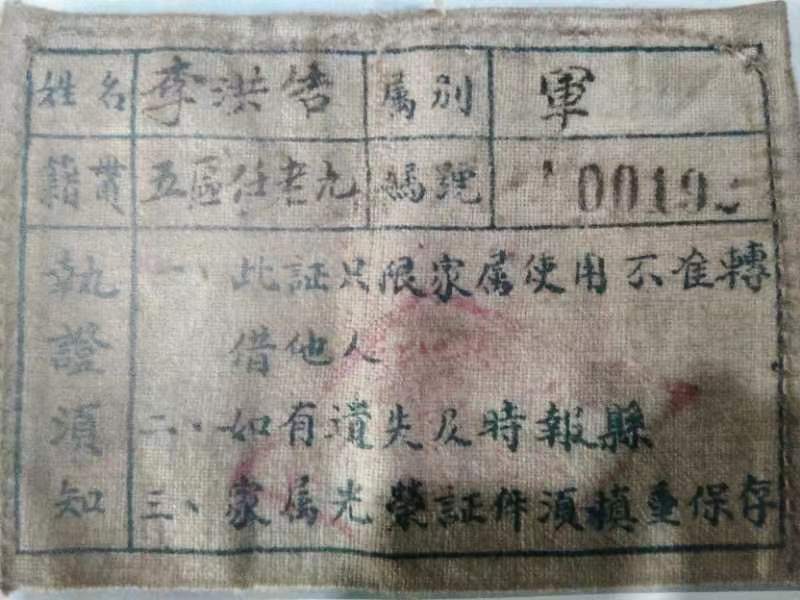 姓名 李洪 属别 軍
籍貫 五區任老九 號 0019
執證須知
一、此証只限家属使用不准轉
借他人
二、如有遺失及時報縣
三、家属光榮証件須慎重保存